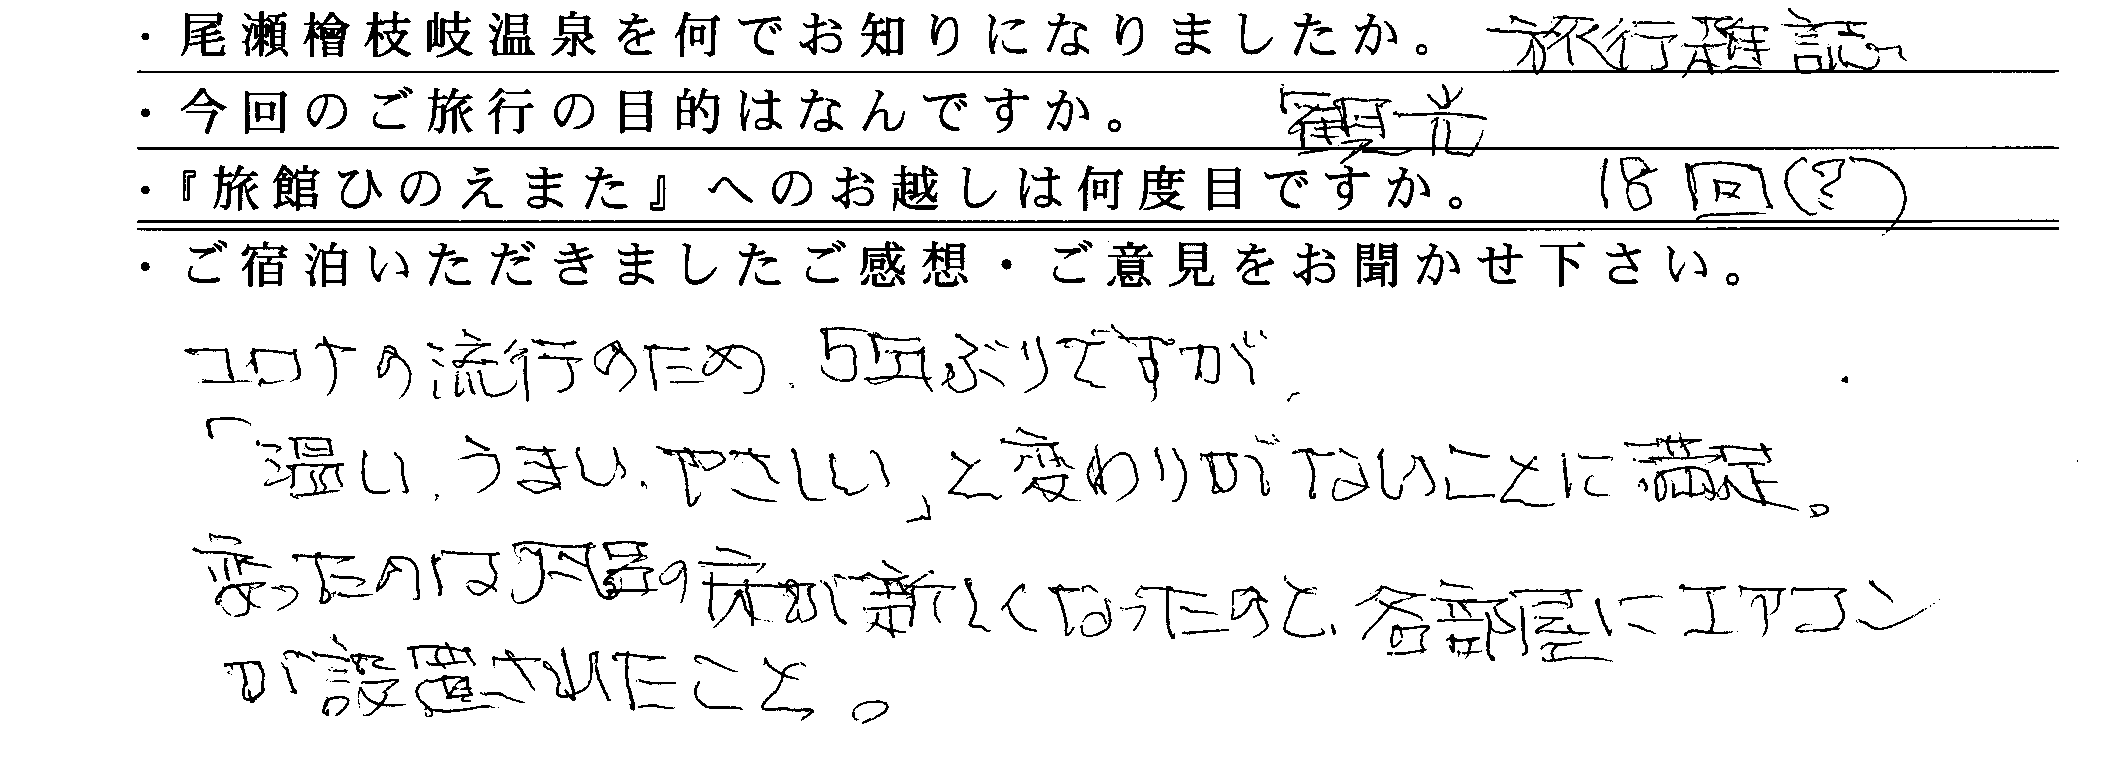 ・尾瀬檜枝岐温泉を何でお知りになりましたか。 旅行雑誌
・今回のご旅行の目的はなんですか。 観光
・『旅館ひのえまた』へのお越しは何度目ですか。 18回(?)
・ご宿泊いただきましたご感想・ご意見をお聞かせ下さい。
コロナの流行のため、5回ぶりですが、
「温い、うまい、やさしい」と変わりがないことに満足。
変ったのは風呂の床が新しくなったのと、各部屋にエアコン
が設置されたこと。